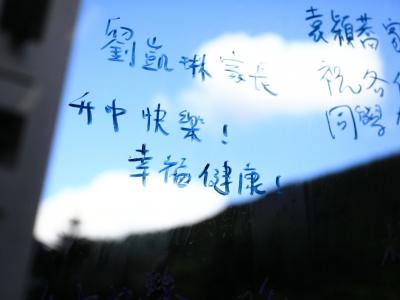 劉凱琳家長
升中快樂！
幸福健康！
袁穎蕎家
祝各位
同學